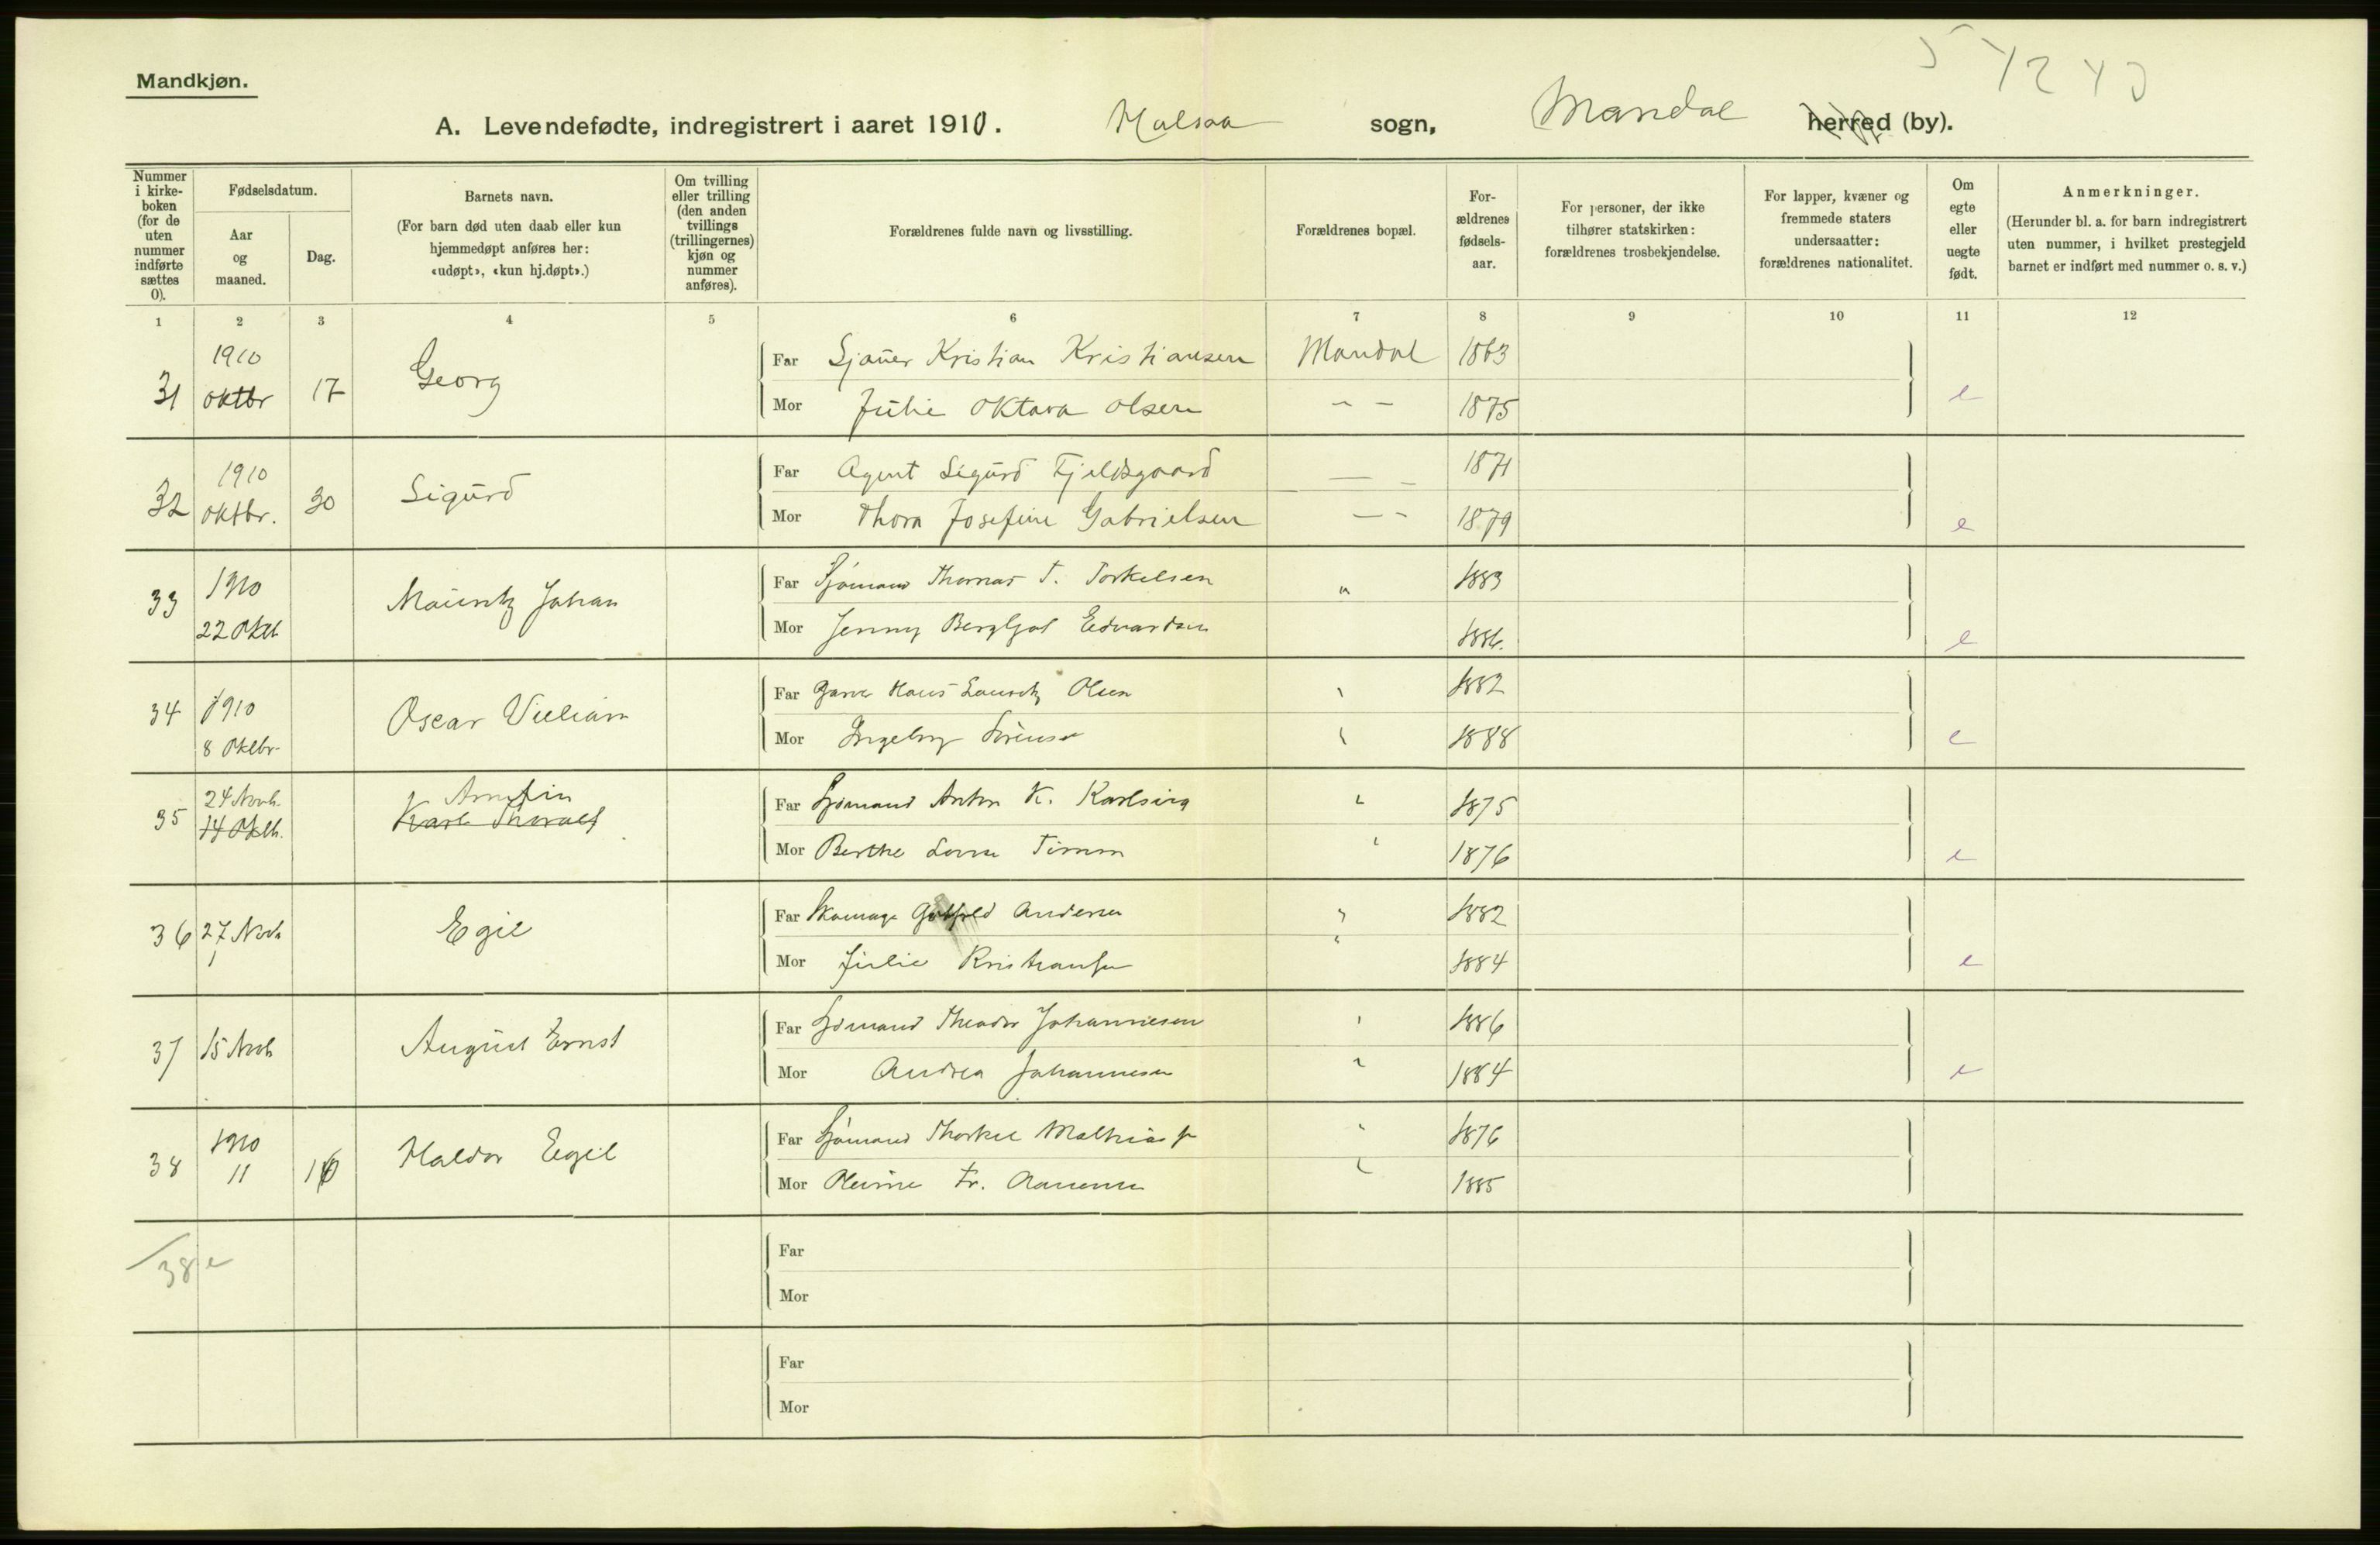 Mandkjøn.
A. Levendefødte, indregistrert i aaret 1910. Halsaa sogn, Mandal herred (by).
Nummer i kirkeboken (for de uten nummer indførte sættes 0).
Fødselsdatum.
Aar og maaned.
Dag.
Barnets navn.
(For barn død uten daab eller kun hjemmedøpt anføres her: «udøpt», «kun hj.døpt».)
Om tvilling eller trilling (den anden tvillings (trillingernes) kjøn og nummer anføres).
Forældrenes fulde navn og livsstilling.
Forældrenes bopæl.
Forældrenes fødselsaar.
For personer, der ikke tilhører statskirken: forældrenes trosbekjendelse.
For lapper, kvæner og fremmede staters undersaatter: forældrenes nationalitet.
Om egte eller uegte født.
Anmerkninger.
(Herunder bl. a. for barn indregistrert uten nummer, i hvilket prestegjeld barnet er indført med nummer o. s. v.)
1 2 3 4 5 6 7 8 9 10 11 12
31 1910 oktbr 17 Georg
Far Sjauer Kristian Kristiansen Mandal 1863
Mor Julie Oktava Olsen — — 1875 e
32 1910 oktbr. 30 Sigurd
Far Agent Sigurd Fjeldsgaard — — 1871
Mor Thora Josefine Gabrielsen — — 1879 e
33 1910 22 Oktb Mauritz Johan
Far Sjømand Thomas T. Torkelsen " 1883
Mor Jenny Bergljot Edvardsen 1886. e
34 1910 8 Oktbr Oscar Viliam
Far Garver Hans Lauritz Olsen " 1882
Mor Ingeborg Sørensen " 1888 e
35 24 Novb. 14 Oktb. Arnfin Karl Thoralf
Far Sjømand Anton K. Karlsen " 1875
Mor Berthe Timm " 1876 e
36 27 Novb Egil
Far Skomager Andersen " 1882
Mor Julie Kristiansen " 1884 e
37 15 Novb August Ernst
Far Sjømand Theodor Johannesen " 1886
Mor Andrea Johannesen " 1884 e
38 1910 11 16 Haldor Egil
Far Sjømand Thorkel Mathias " 1876
Mor Fr. " 1885
38 e
Far
Mor
Far
Mor